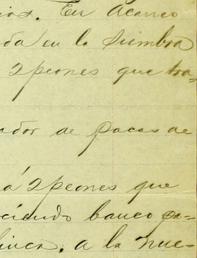 En acarreo
da en la siembra
2 peones que tra-
ador de pacas de
á 2 peones que
ciendo banco pa-
linea. a la nue-